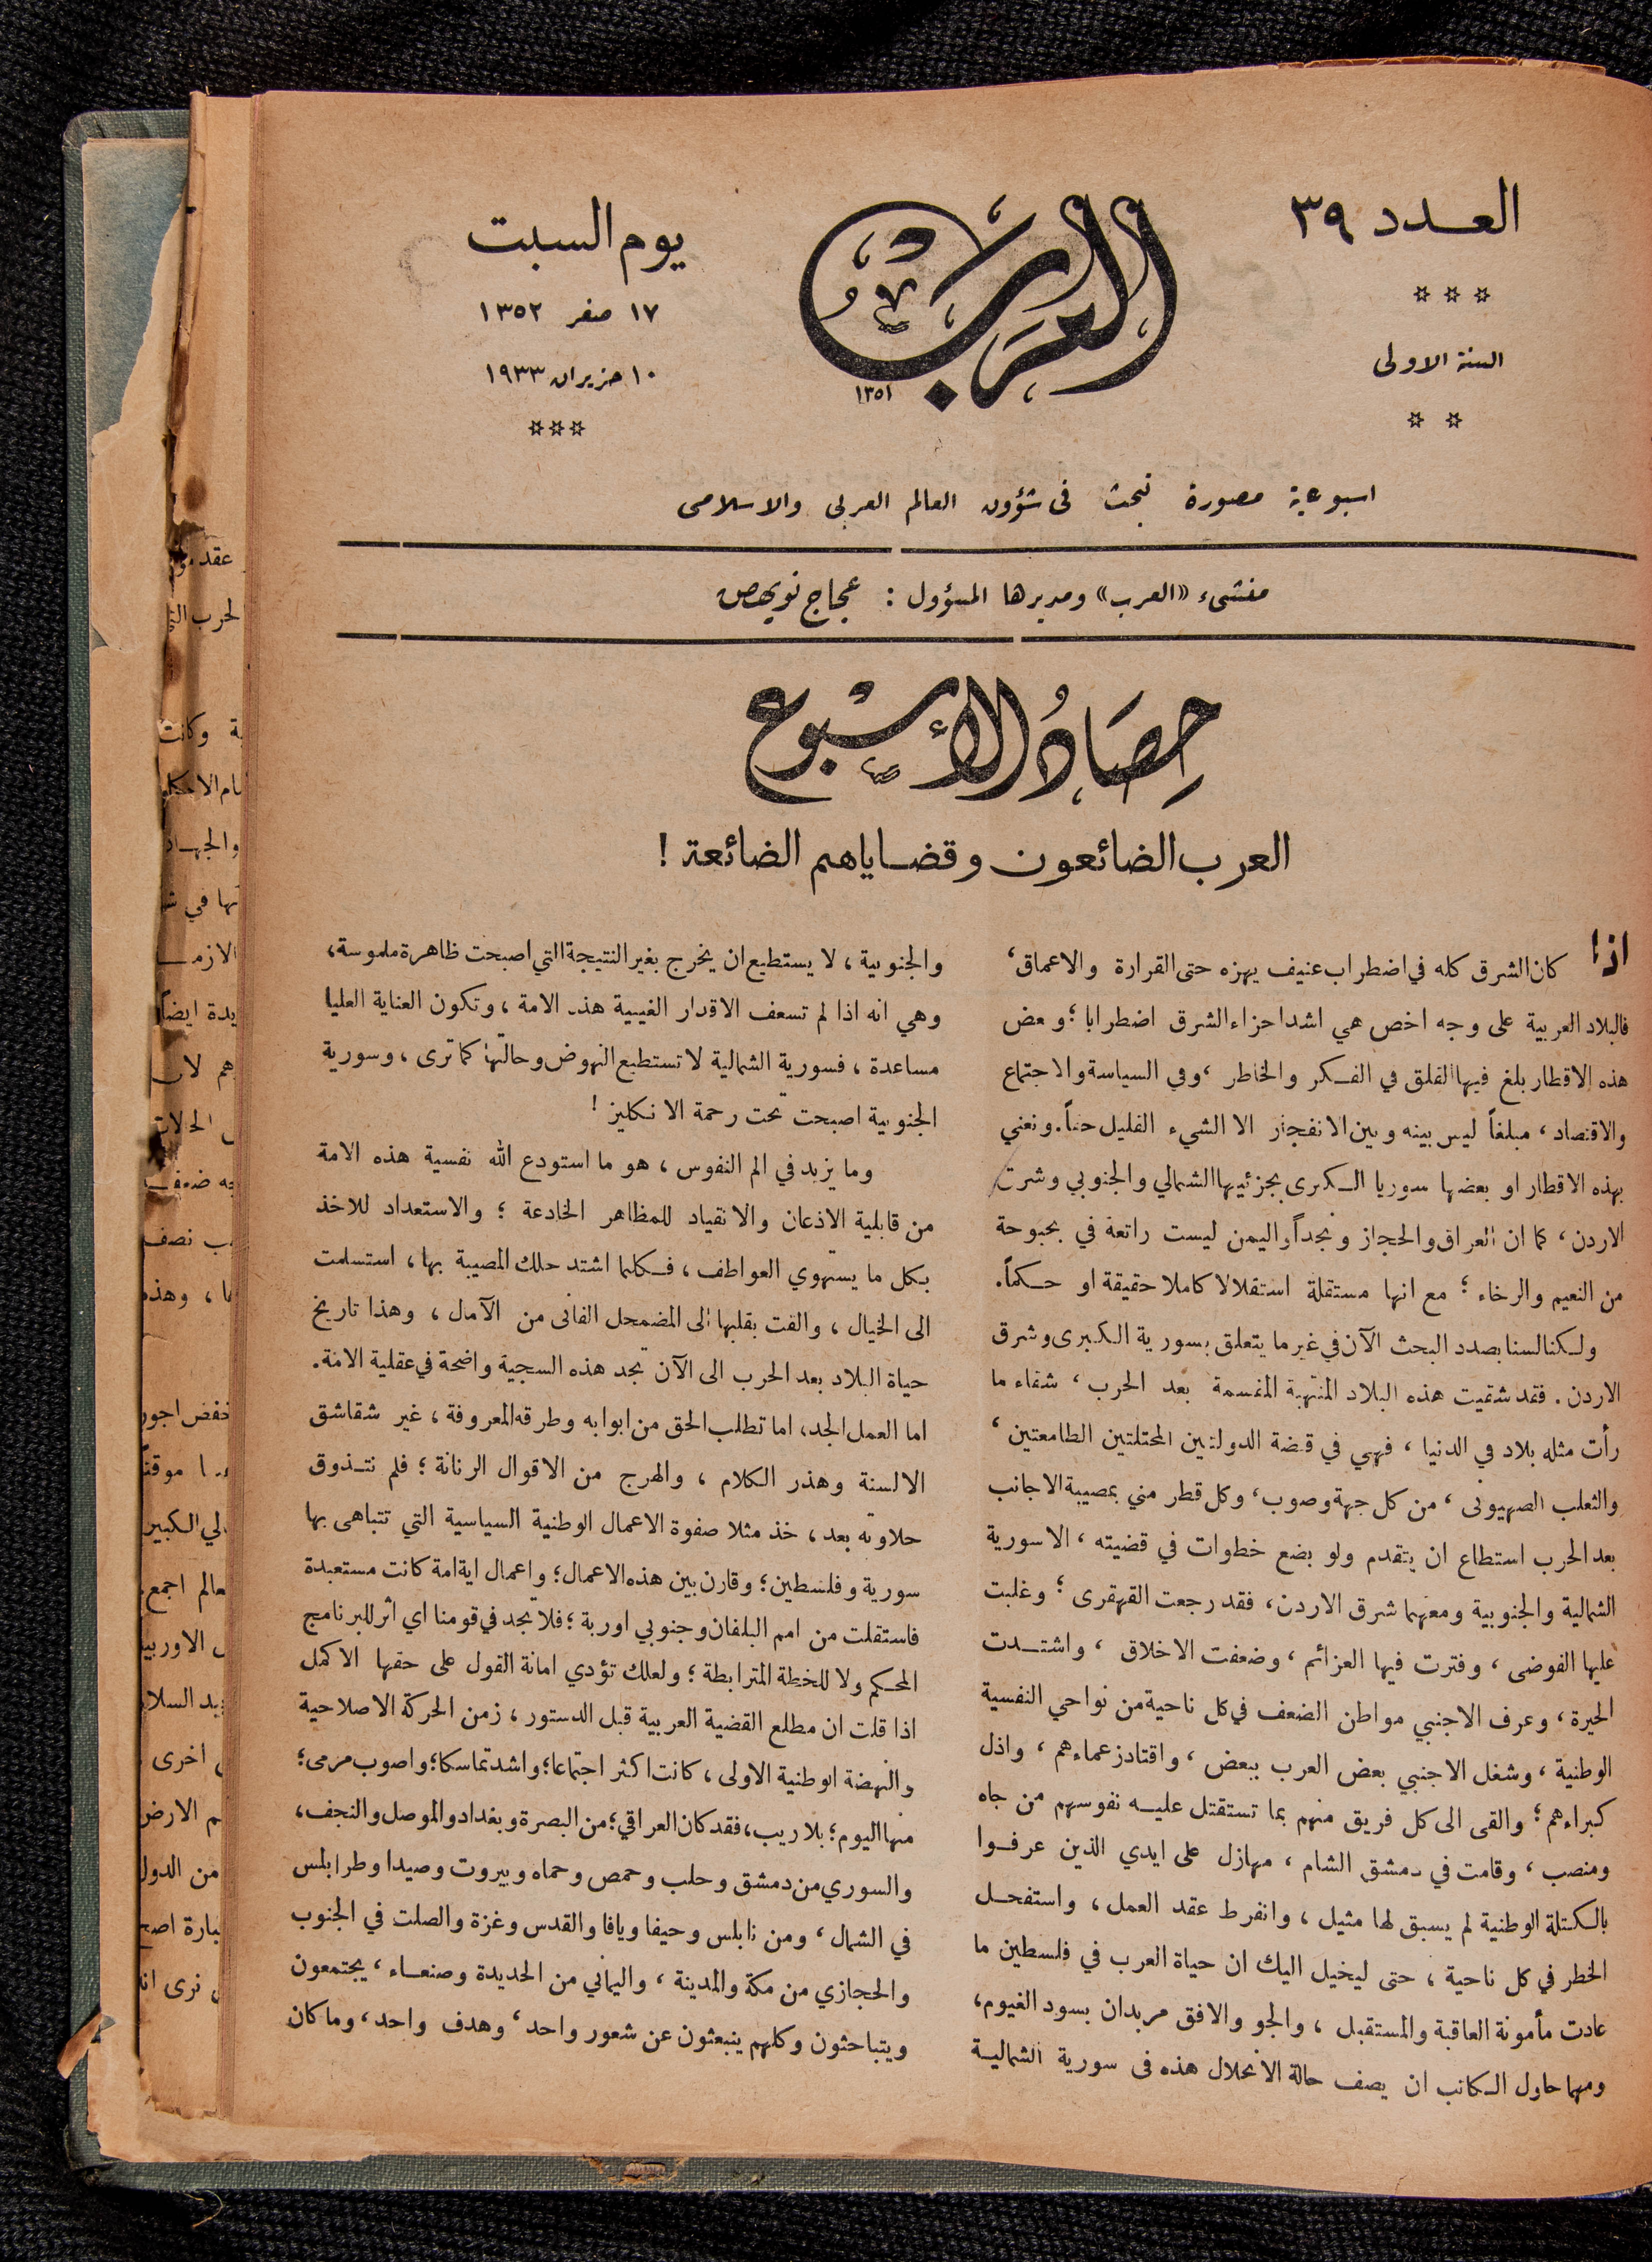 العدد ٣٩
السنة الاولى
العرب
١٣٥١
يوم السبت
١٧ صفر ١٣٥٢
١٠ حزيران ١٩٣٣
اسبوعية مصورة تبحث في شؤون العالم العربي والاسلامي
منشىء «العرب» ومديرها المسؤول : عجاج نويهض
حِصَادُ الأسبوع
العرب الضائعون وقضاياهم الضائعة !
اذا كان الشرق كله في اضطراب عنيف يهزه حتى القرارة والاعماق،
فالبلاد العربية على وجه اخص هي اشد اجزاء الشرق اضطرابا ؛ وبعض
هذه الاقطار بلغ فيها القلق في الفكر والخاطر ، وفي السياسة والاجتماع
والاقتصاد ، مبلغاً ليس بينه وبين الانفجار الا الشيء القليل جداً. ونعني
بهذه الاقطار او بعضها سوريا الكبرى بجزئيها الشمالي والجنوبي وشرق
الاردن ، كما ان العراق والحجاز ونجداً واليمن ليست راتعة في بحبوحة
من النعيم والرخاء ؛ مع انها مستقلة استقلالا كاملا حقيقة او حكماً.
ولكنا لسنا بصدد البحث الآن في غير ما يتعلق بسورية الكبرى وشرق
الاردن . فقد شقيت هذه البلاد المنتهبة المقسمة بعد الحرب ، شقاء ما
رأت مثله بلاد في الدنيا ، فهي في قبضة الدولتين المحتلتين الطامعتين ،
والثعلب الصهيوني ، من كل جهة وصوب ، وكل قطر مني بمصيبة الاجانب
بعد الحرب استطاع ان يتقدم ولو بضع خطوات في قضيته ، الا سورية
الشمالية والجنوبية ومعهما شرق الاردن ، فقد رجعت القهقرى ؛ وغلبت
عليها الفوضى ، وفترت فيها العزائم ، وضعفت الاخلاق ، واشتدت
الحيرة ، وعرف الاجنبي مواطن الضعف في كل ناحية من نواحي النفسية
الوطنية ، وشغل الاجنبي بعض العرب ببعض ، واقتاد زعماءهم ، واذل
كبراءهم ؛ والقى الى كل فريق منهم بما تستقتل عليه نفوسهم من جاه
ومنصب ، وقامت في دمشق الشام ، مهازل على ايدي الذين عرفوا
بالكتلة الوطنية لم يسبق لها مثيل ، وانفرط عقد العمل ، واستفحل
الخطر في كل ناحية ، حتى ليخيل اليك ان حياة العرب في فلسطين ما
عادت مأمونة العاقبة والمستقبل ، والجو والافق مربدان بسود الغيوم،
ومهما حاول الكاتب ان يصف حالة الانحلال هذه في سورية الشمالية
والجنوبية ، لا يستطيع ان يخرج بغير النتيجة التي اصبحت ظاهرة ملموسة،
وهي انه اذا لم تسعف الاقدار الغيبية هذه الامة ، وتكون العناية العليا
مساعدة ، فسورية الشمالية لا تستطيع النهوض وحالتها كما ترى ، وسورية
الجنوبية اصبحت تحت رحمة الانكليز !
وما يزيد في الم النفوس ، هو ما استودع الله نفسية هذه الامة
من قابلية الاذعان والانقياد للمظاهر الخادعة ؛ والاستعداد للاخذ
بكل ما يستهوي العواطف ، فكلما اشتد حلك المصيبة بها ، استسلمت
الى الخيال ، والقت بقلبها الى المضمحل الفاني من الآمال ، وهذا تاريخ
حياة البلاد بعد الحرب الى الآن تجد هذه السجية واضحة في عقلية الامة.
اما العمل الجد، اما تطلب الحق من ابوابه وطرقه المعروفة ، غير شقاشق
الالسنة وهذر الكلام ، والهرج من الاقوال الرنانة ؛ فلم نتذوق
حلاوته بعد ، خذ مثلا صفوة الاعمال الوطنية السياسية التي تتباهى بها
سورية وفلسطين ؛ وقارن بين هذه الاعمال ؛ واعمال اية امة كانت مستعبدة
فاستقلت من امم البلقان وجنوبي اوربة ؛ فلا تجد في قومنا اي اثر للبرنامج
المحكم ولا للخطة المترابطة ؛ ولعلك تؤدي امانة القول على حقها الاكمل
اذا قلت ان مطلع القضية العربية قبل الدستور ، زمن الحركة الاصلاحية
والنهضة الوطنية الاولى ، كانت اكثر اجتماعا ؛ واشد تماسكا ؛ واصوب مرمى ؛
منها اليوم ؛ بلا ريب ، فقد كان العراقي ؛ من البصرة وبغداد والموصل والنجف،
والسوري من دمشق وحلب وحمص وحماه وبيروت وصيدا وطرابلس
في الشمال ، ومن نابلس وحيفا ويافا والقدس وغزة والصلت في الجنوب
والحجازي من مكة والمدينة ، واليماني من الحديدة وصنعاء ، يجتمعون
ويتباحثون وكلهم ينبعثون عن شعور واحد ، وهدف واحد ، وما كان